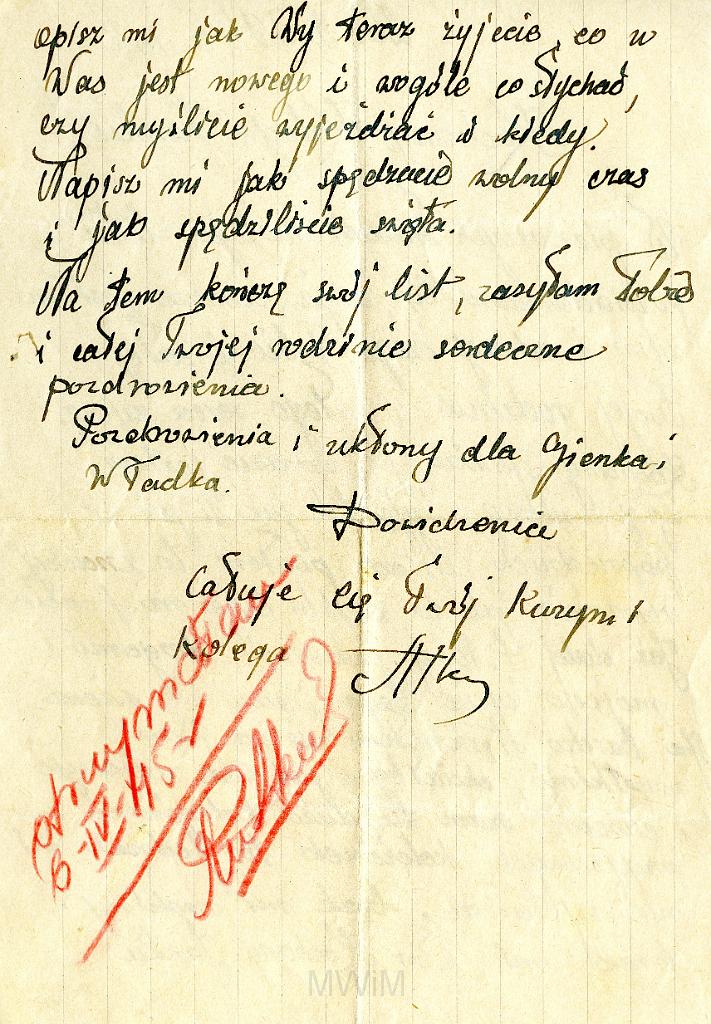 opisz mi jak Wy teraz żyjecie, co u
Was jest nowego i wogóle co słychać,
czy myślicie wyjeżdżać i kiedy.
Napisz mi jak spędzacie wolny czas
i jak spędziliście święta.
Na tem kończę swój list, zasyłam Tobie
i całej Twojej rodzinie serdeczne
pozdrowienia.
Pozdrowienia i ukłony dla Gienka i
Władka.
Dowidzenia
Całuje cię Twój Kuzyn i
Kolega
otrzymałam
6-IV-45
MWiM